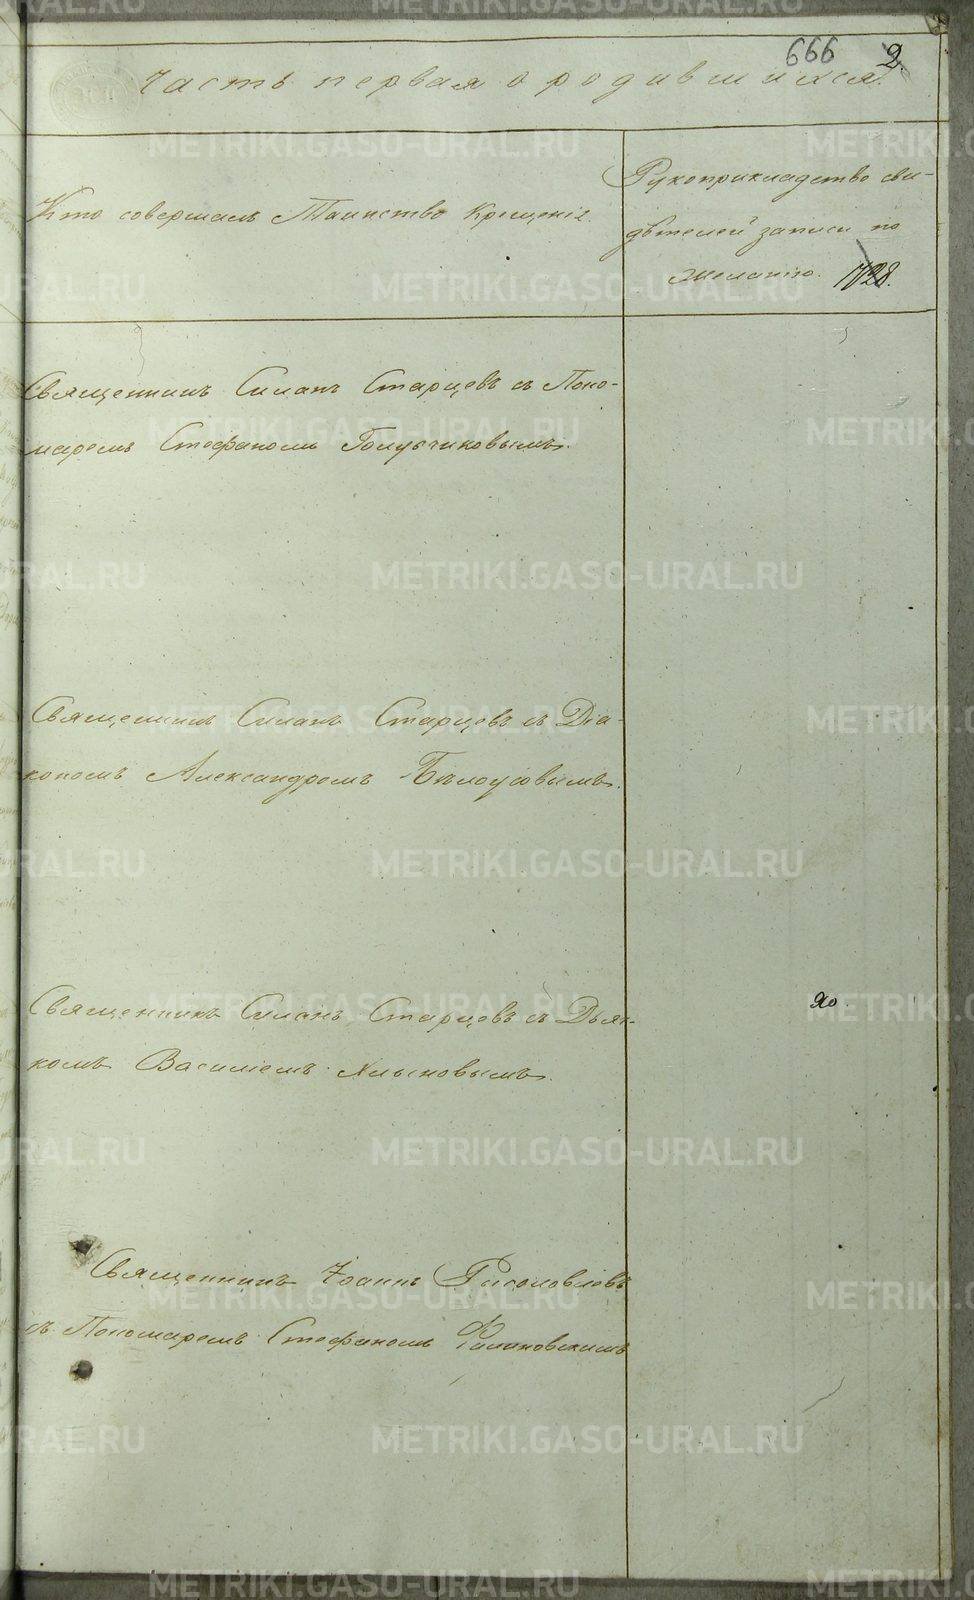 666 2
Часть первая о родившихся.
Кто совершалъ Таинство Крещенія.
Рукоприкладство сви-
дѣтелей записи по
желанію. 1728.
Священникъ Силанъ Старцевъ съ Поно-
маремъ Стефаномъ Голубчиковымъ.
Священникъ Силанъ Старцевъ съ Діа-
кономъ Александромъ Бѣлоусовымъ.
Священникъ Силанъ Старцевъ съ Дьяч-
комъ Василіемъ Хлыновымъ.
Священникъ Іоаннъ
съ Пономаремъ Стефаномъ
METRIKI.GASO-URAL.RU